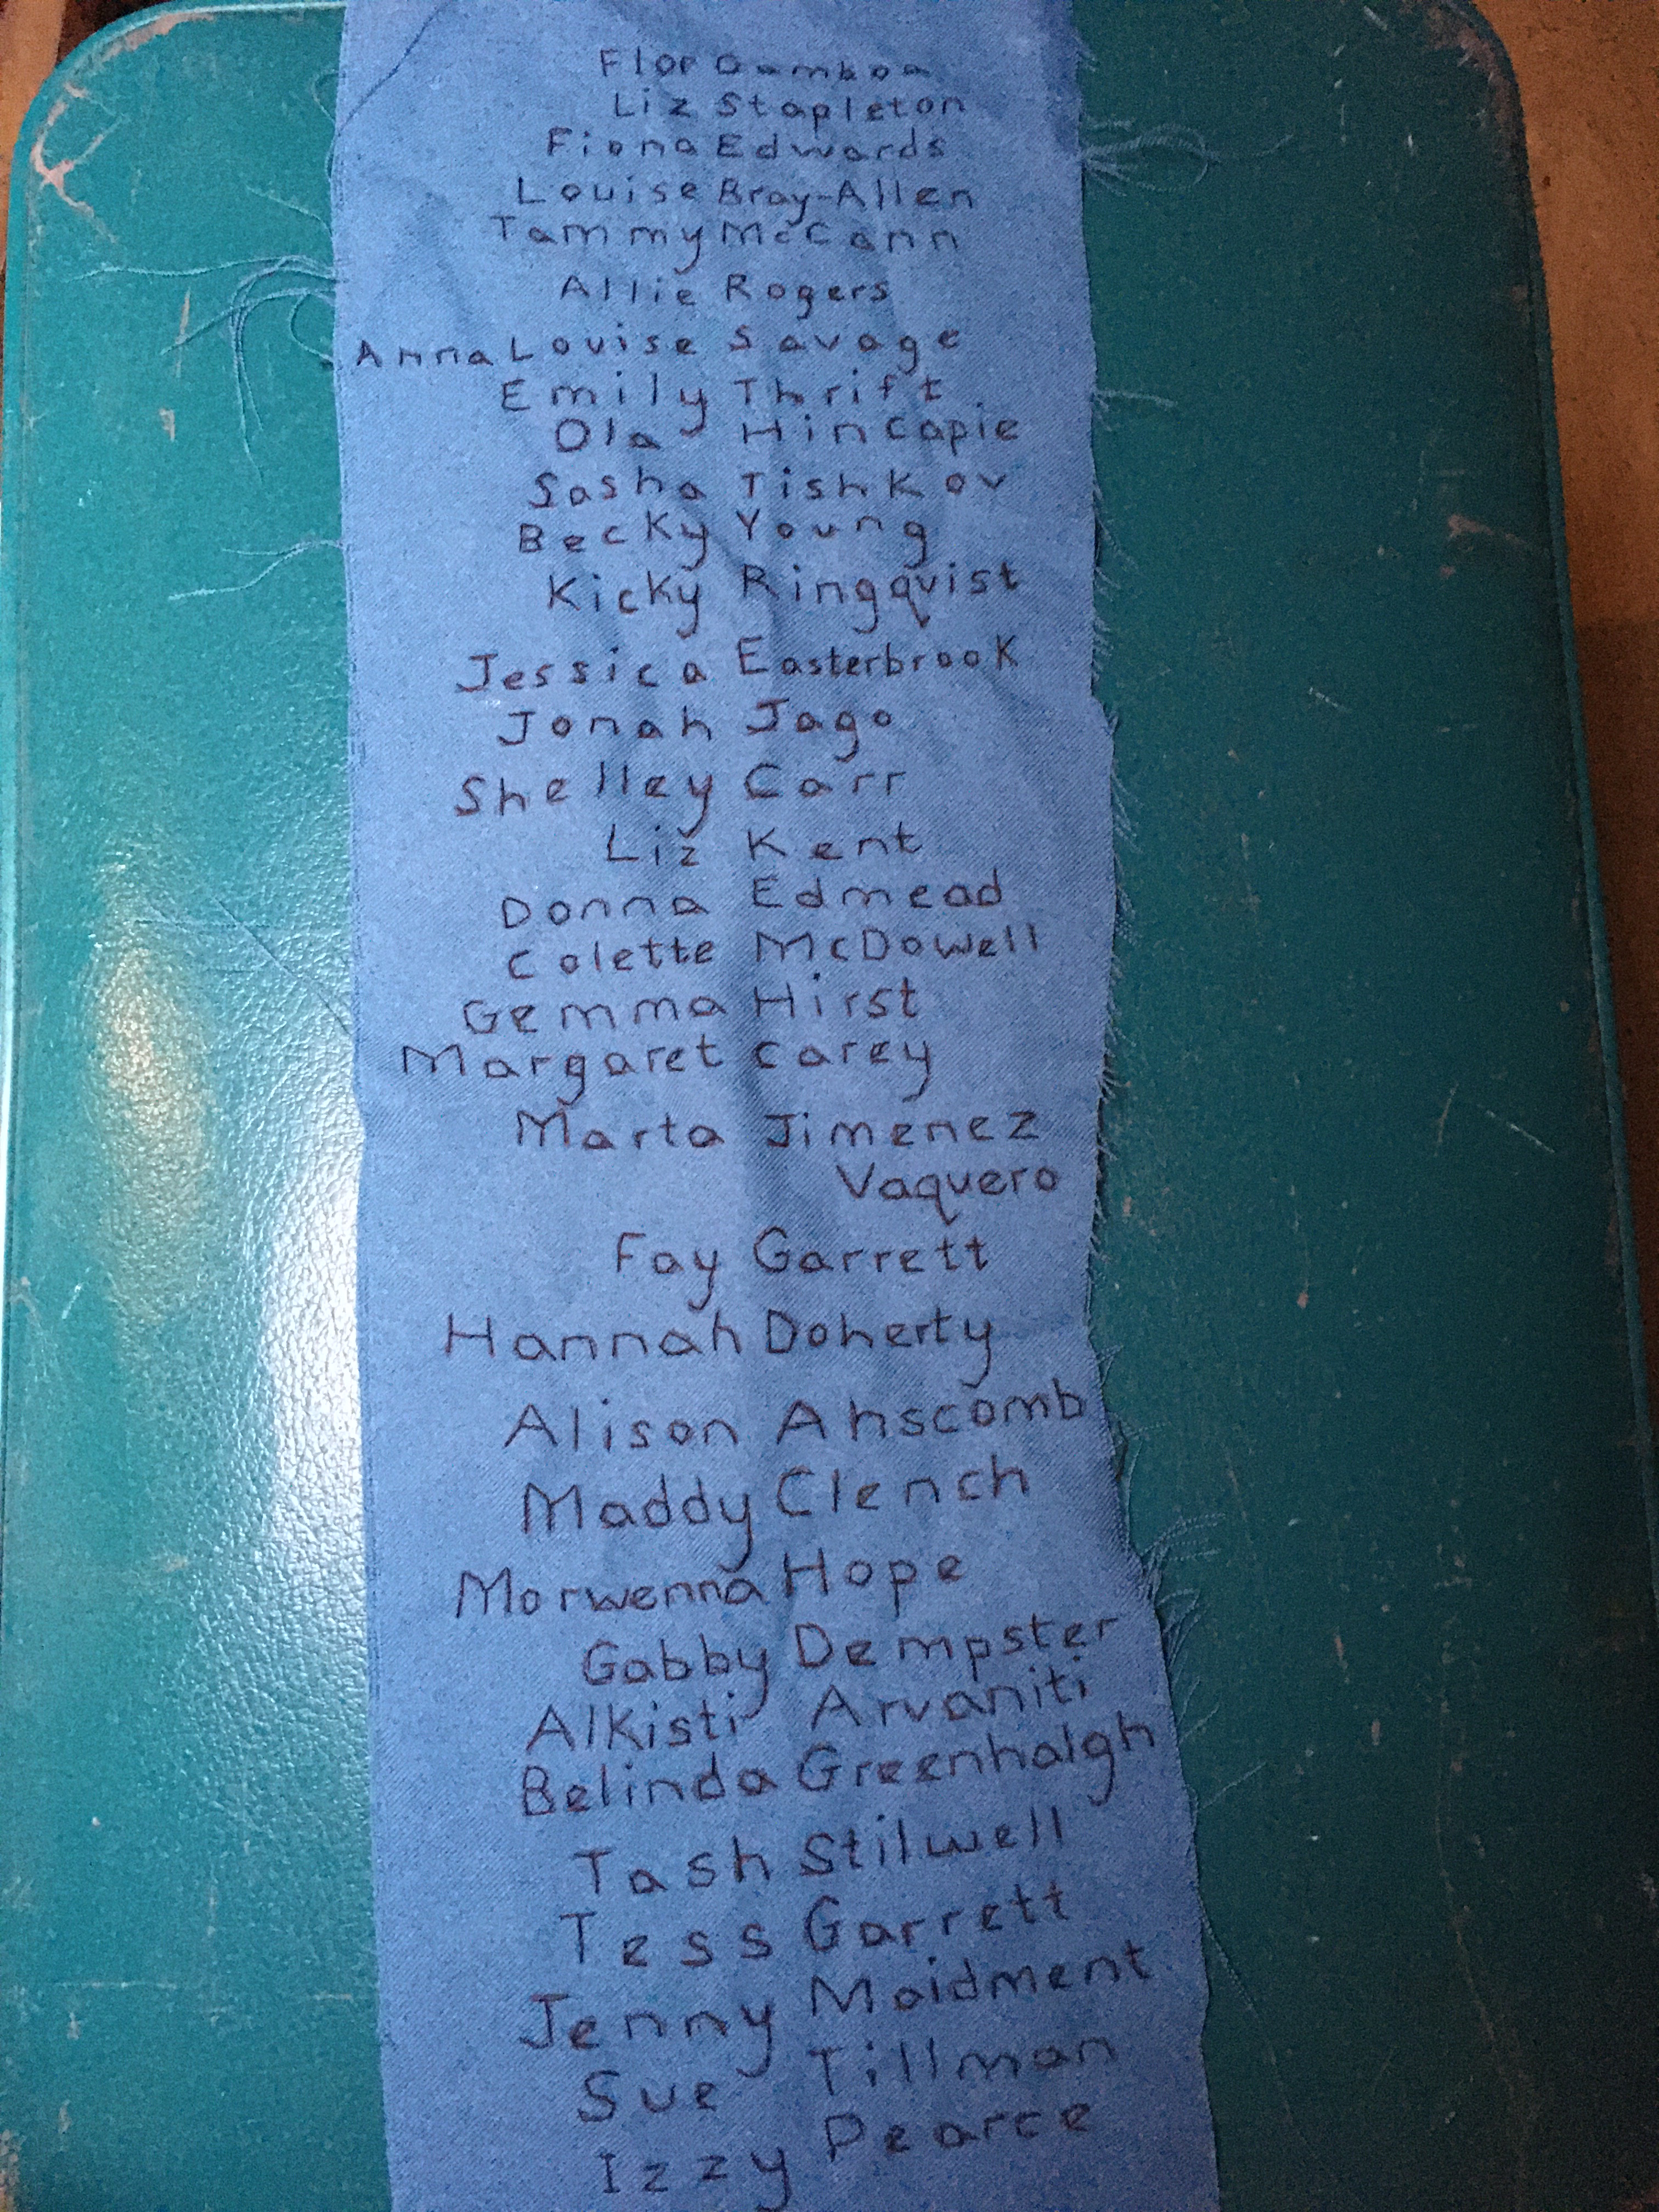 Flor Gamboa
Liz Stapleton
Fiona Edwards
Louise Bray-Allen
Tammy McCann
Allie Rogers
Anna Louise Savage
Emily Thrift
Ola Hincapie
Sasha Tishkov
Becky Young
Kicky Ringqvist
Jessica Easterbrook
Jonah Jago
Shelley Carr
Liz Kent
Donna Edmead
Colette McDowell
Gemma Hirst
Margaret Carey
Marta Jimenez
Vaquero
Fay Garrett
Hannah Doherty
Alison Ahscomb
Maddy Clench
Morwenna Hope
Gabby Dempster
Alkisti Arvaniti
Belinda Greenhalgh
Tash Stilwell
Tess Garrett
Jenny Maidment
Sue Tillman
Izzy Pearce